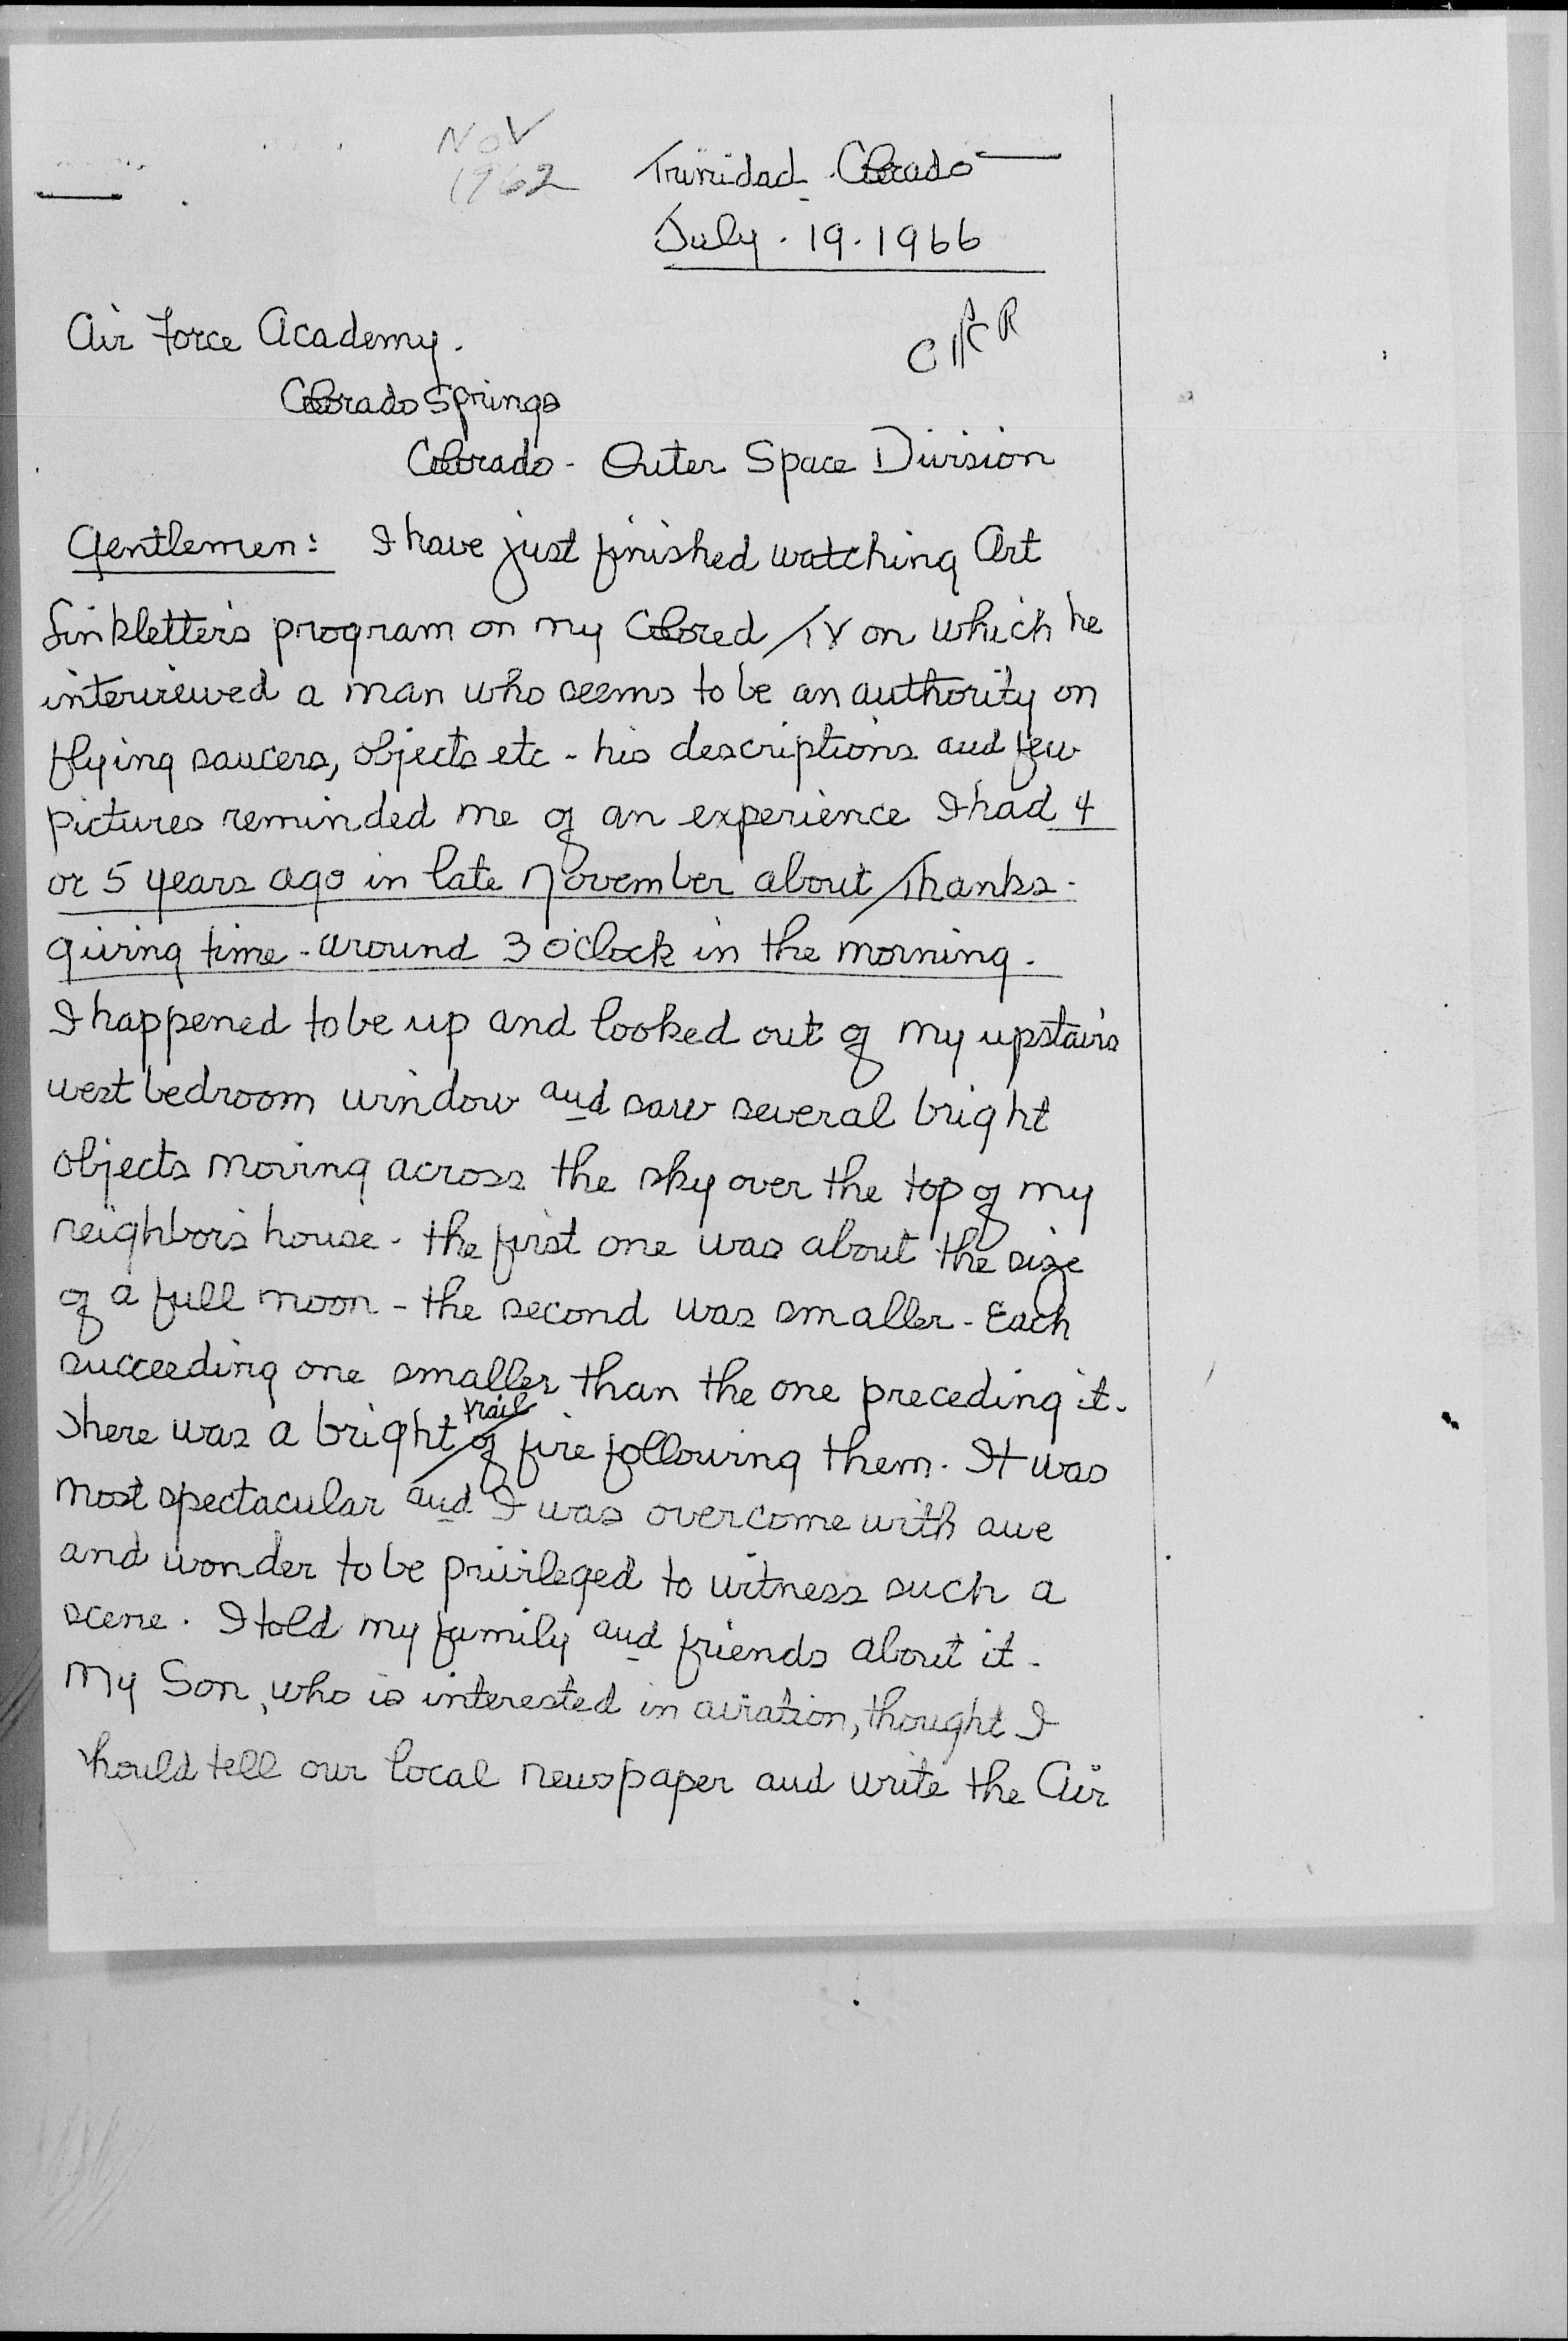 Nov
1962
Trinidad. Colorado
July. 19. 1966
Air Force Academy.
Colorado Springs
Colorado - Outer Space Division
Gentlemen: I have just finished watching Art
Linkletter's program on my Colored TV on which he
interviewed a man who seems to be an authority on
flying saucers, objects etc - his descriptions and few
pictures reminded me of an experience I had 4
or 5 years ago in late November about Thanks-
giving time - around 3 o'clock in the morning.
I happened to be up and looked out of my upstairs
west bedroom window and saw several bright
objects moving across the sky over the top of my
neighbor's house - the first one was about the size
of a full moon - the second was smaller - Each
succeeding one smaller than the one preceding it.
There was a bright trail of fire following them. It was
most spectacular and I was overcome with awe
and wonder to be privileged to witness such a
scene. I told my family and friends about it -
My Son, who is interested in aviation, thought I
should tell our local newspaper and write the Air